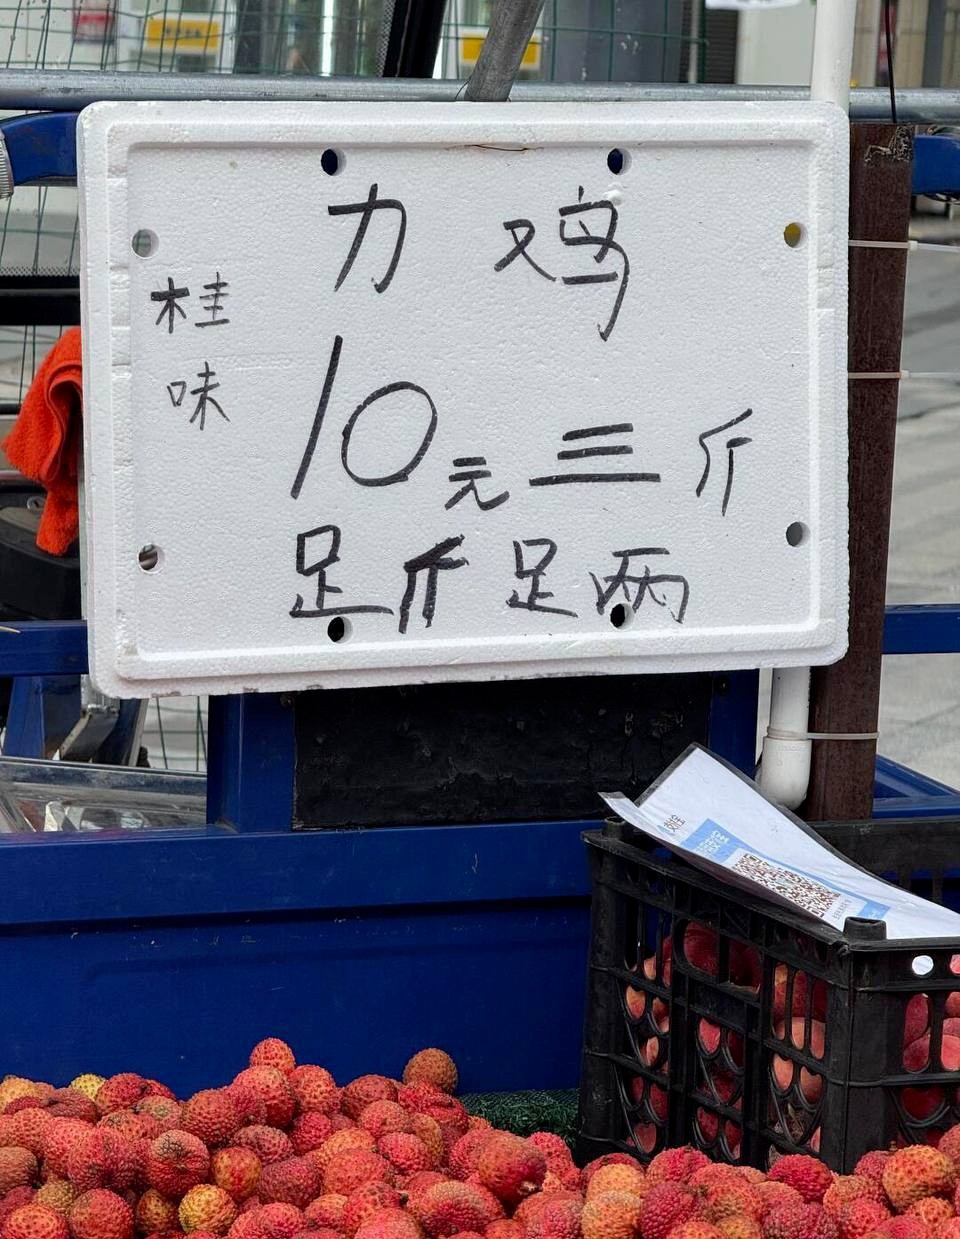 力 鸡
桂味
10元三斤
足斤足两